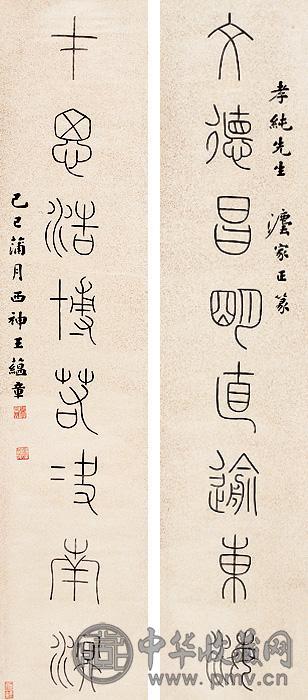 孝純先生 灋家正篆
文德昌明直逾東海
才思浩博若決南溟
己巳蒲月西神王蘊章
中华收藏网